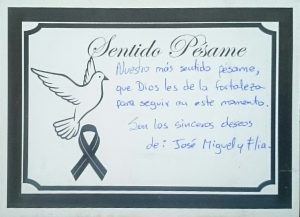 Sentido Pésame
Nuestro más sentido pésame,
que Dios les de la fortaleza
para seguir en este momento.
Son los sinceros deseos
de: José Miguel y Flia.